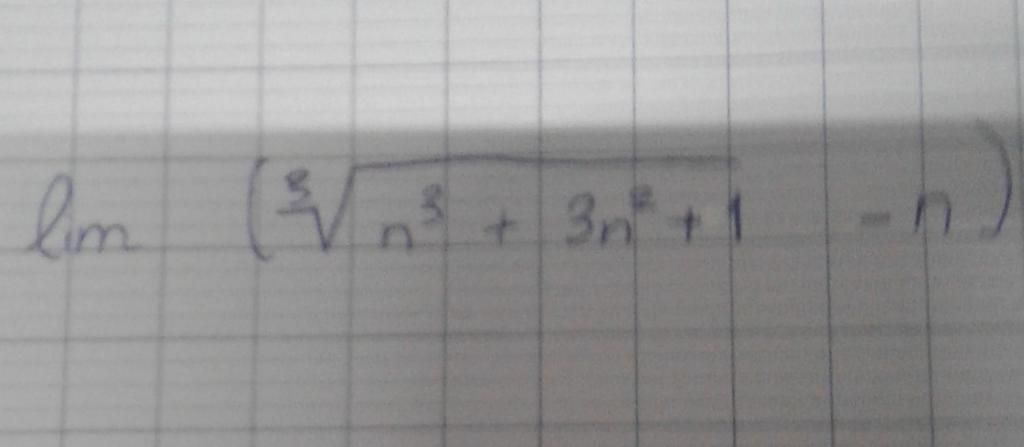 lim (∛(n³ + 3n² + 1) - n)